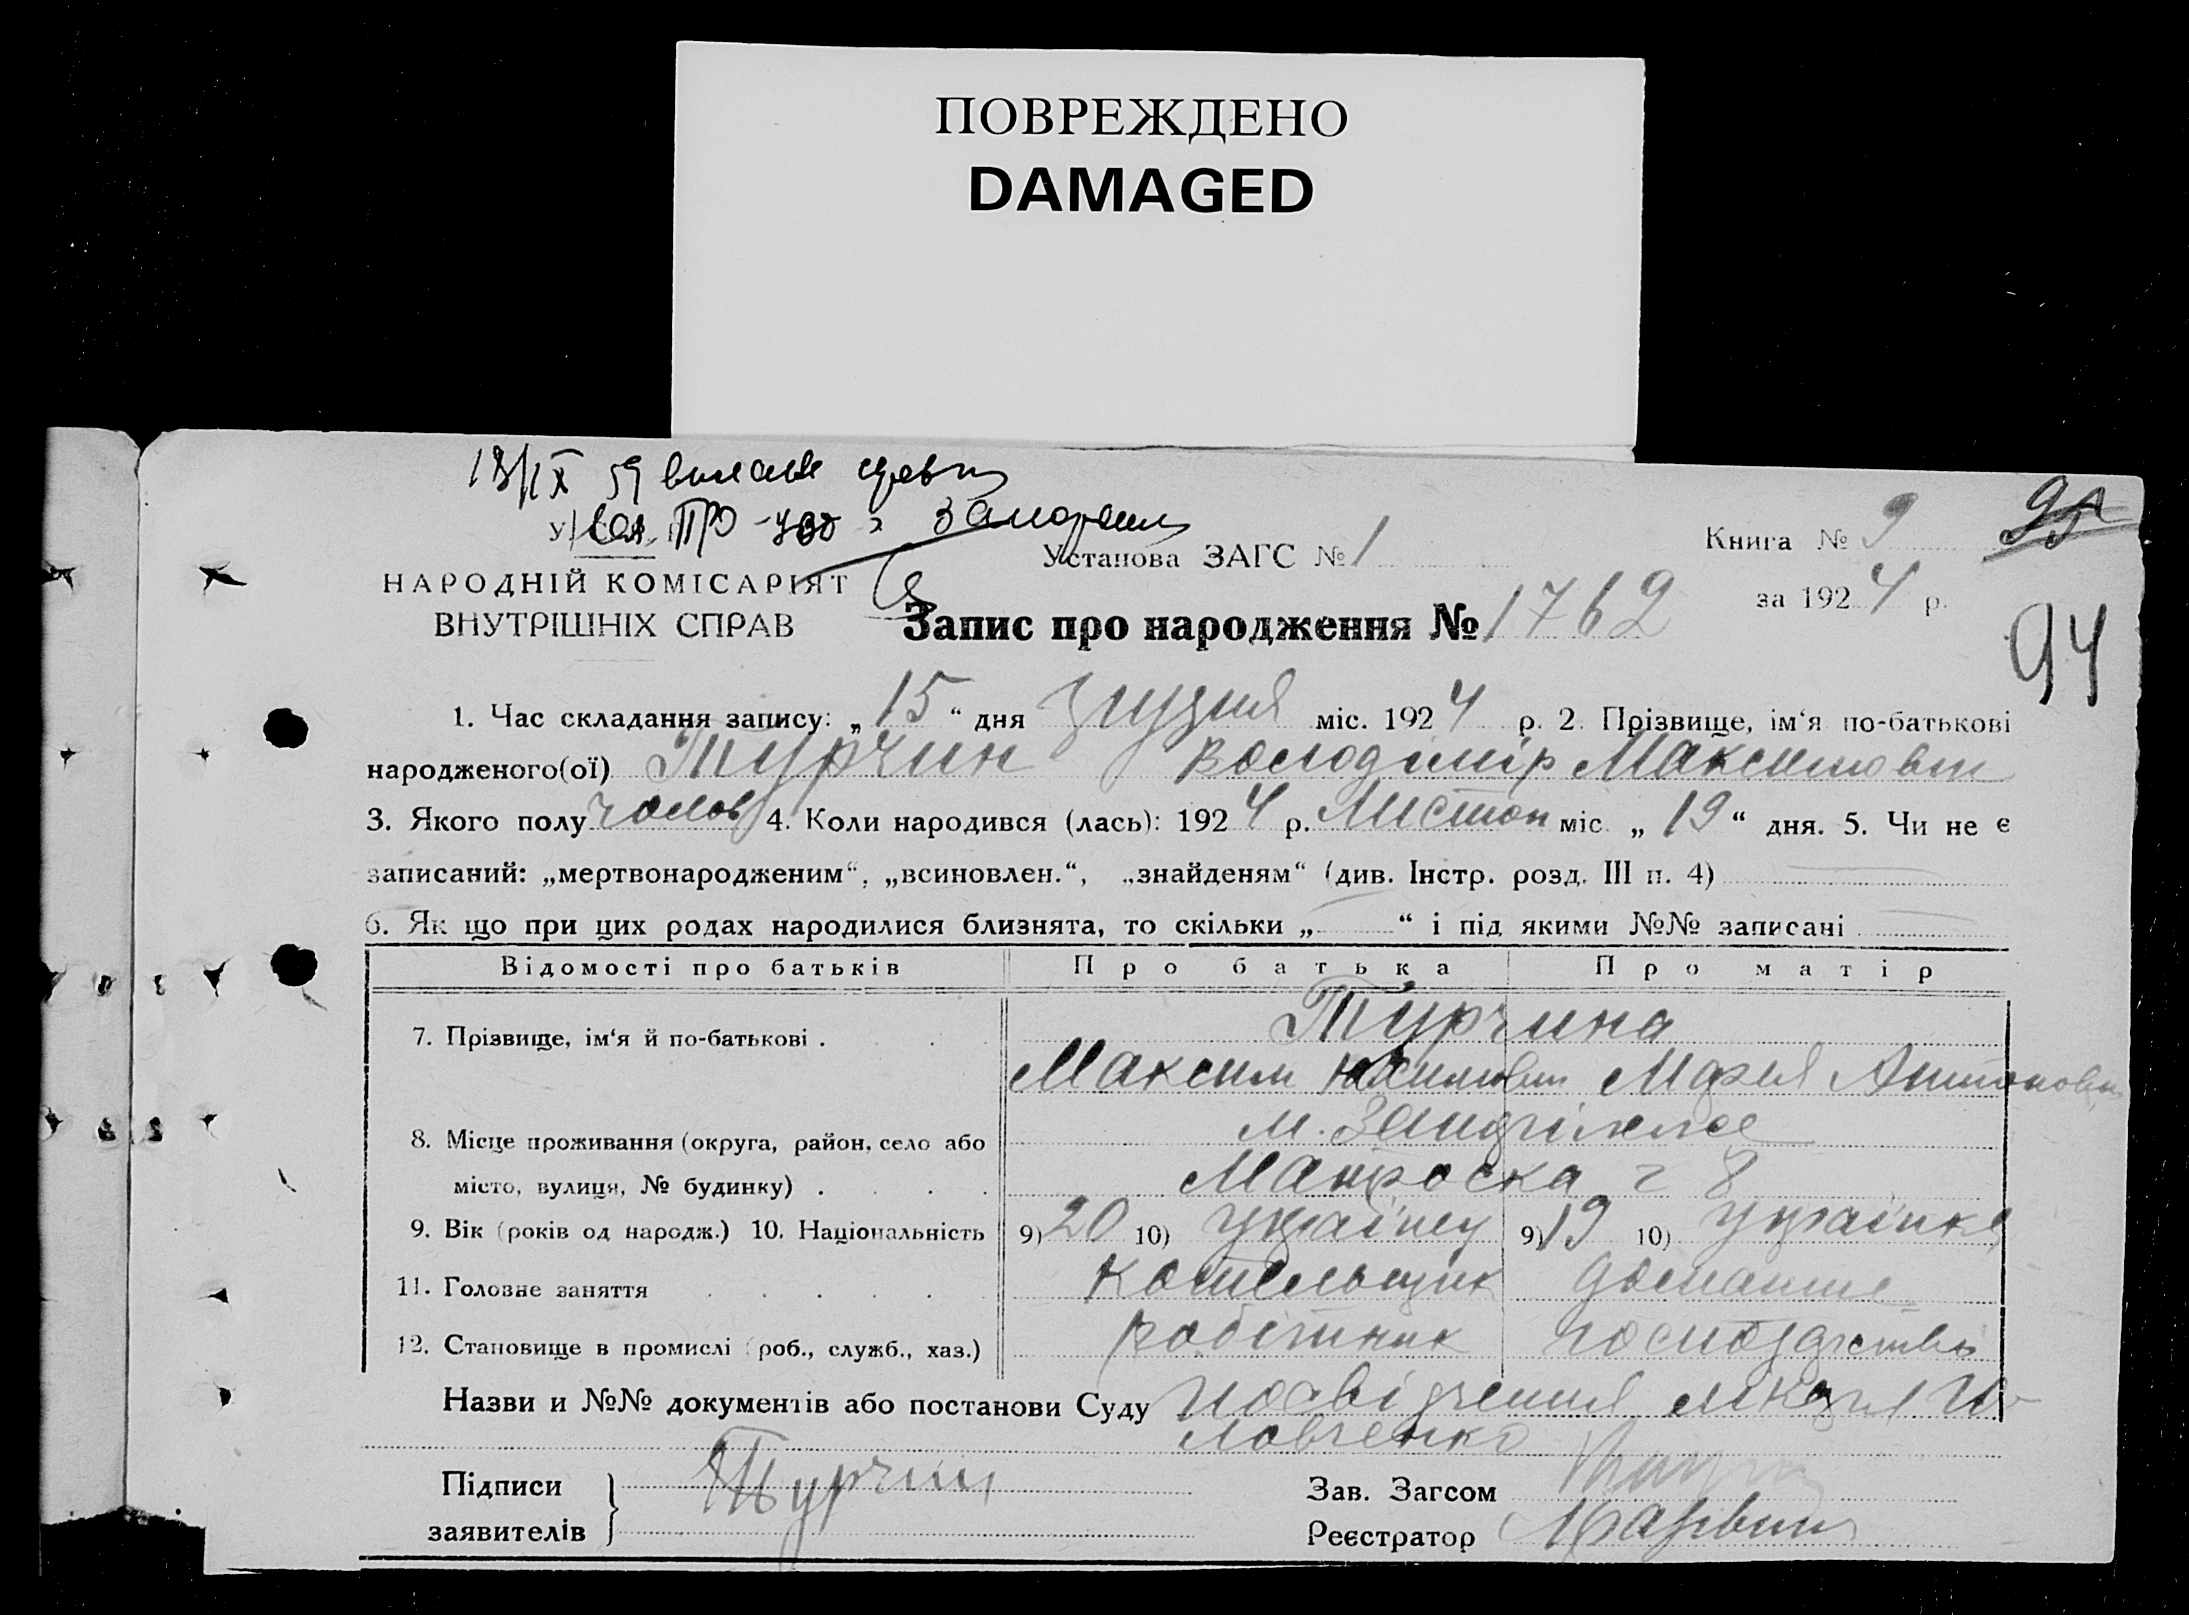 ПОВРЕЖДЕНО
DAMAGED
59
Книга № 9
Установа ЗАГС № 1
за 1924 р.
НАРОДНІЙ КОМІСАРІЯТ
ВНУТРІШНІХ СПРАВ
Запис про народження № 1762
94
1. Час складання запису: „15“ дня грудня міс. 1924 р. 2. Прізвище, ім‘я по-батькові
народженого(ої) Турчин Володімір Максимович
3. Якого полу чолов 4. Коли народився (лась): 1924 р. Листоп міс. „19“ дня. 5. Чи не є
записаний: „мертвонародженим“, „всиновлен.“, „знайденям“ (див. Інстр. розд. III п. 4)
6. Як що при цих родах народилися близнята, то скільки „ “ і під якими №№ записані
Відомості про батьків Про батька Про матір
7. Прізвище, ім‘я й по-батькові . Турчина
Максим Мария Антоновн
8. Місце проживання (округа, район, село або м.
місто, вулиця, № будинку) . 8
9. Вік (років од народж.) 10. Національність 9) 20 10) українец 9) 19 10) українка
11. Головне заняття котельщик домашнє
12. Становище в промислі (роб., служб., хаз.) робітник господарство
Назви и №№ документів або постанови Суду Посвідчення лікаря
Підписи Турчин Зав. Загсом
заявителів Реєстратор